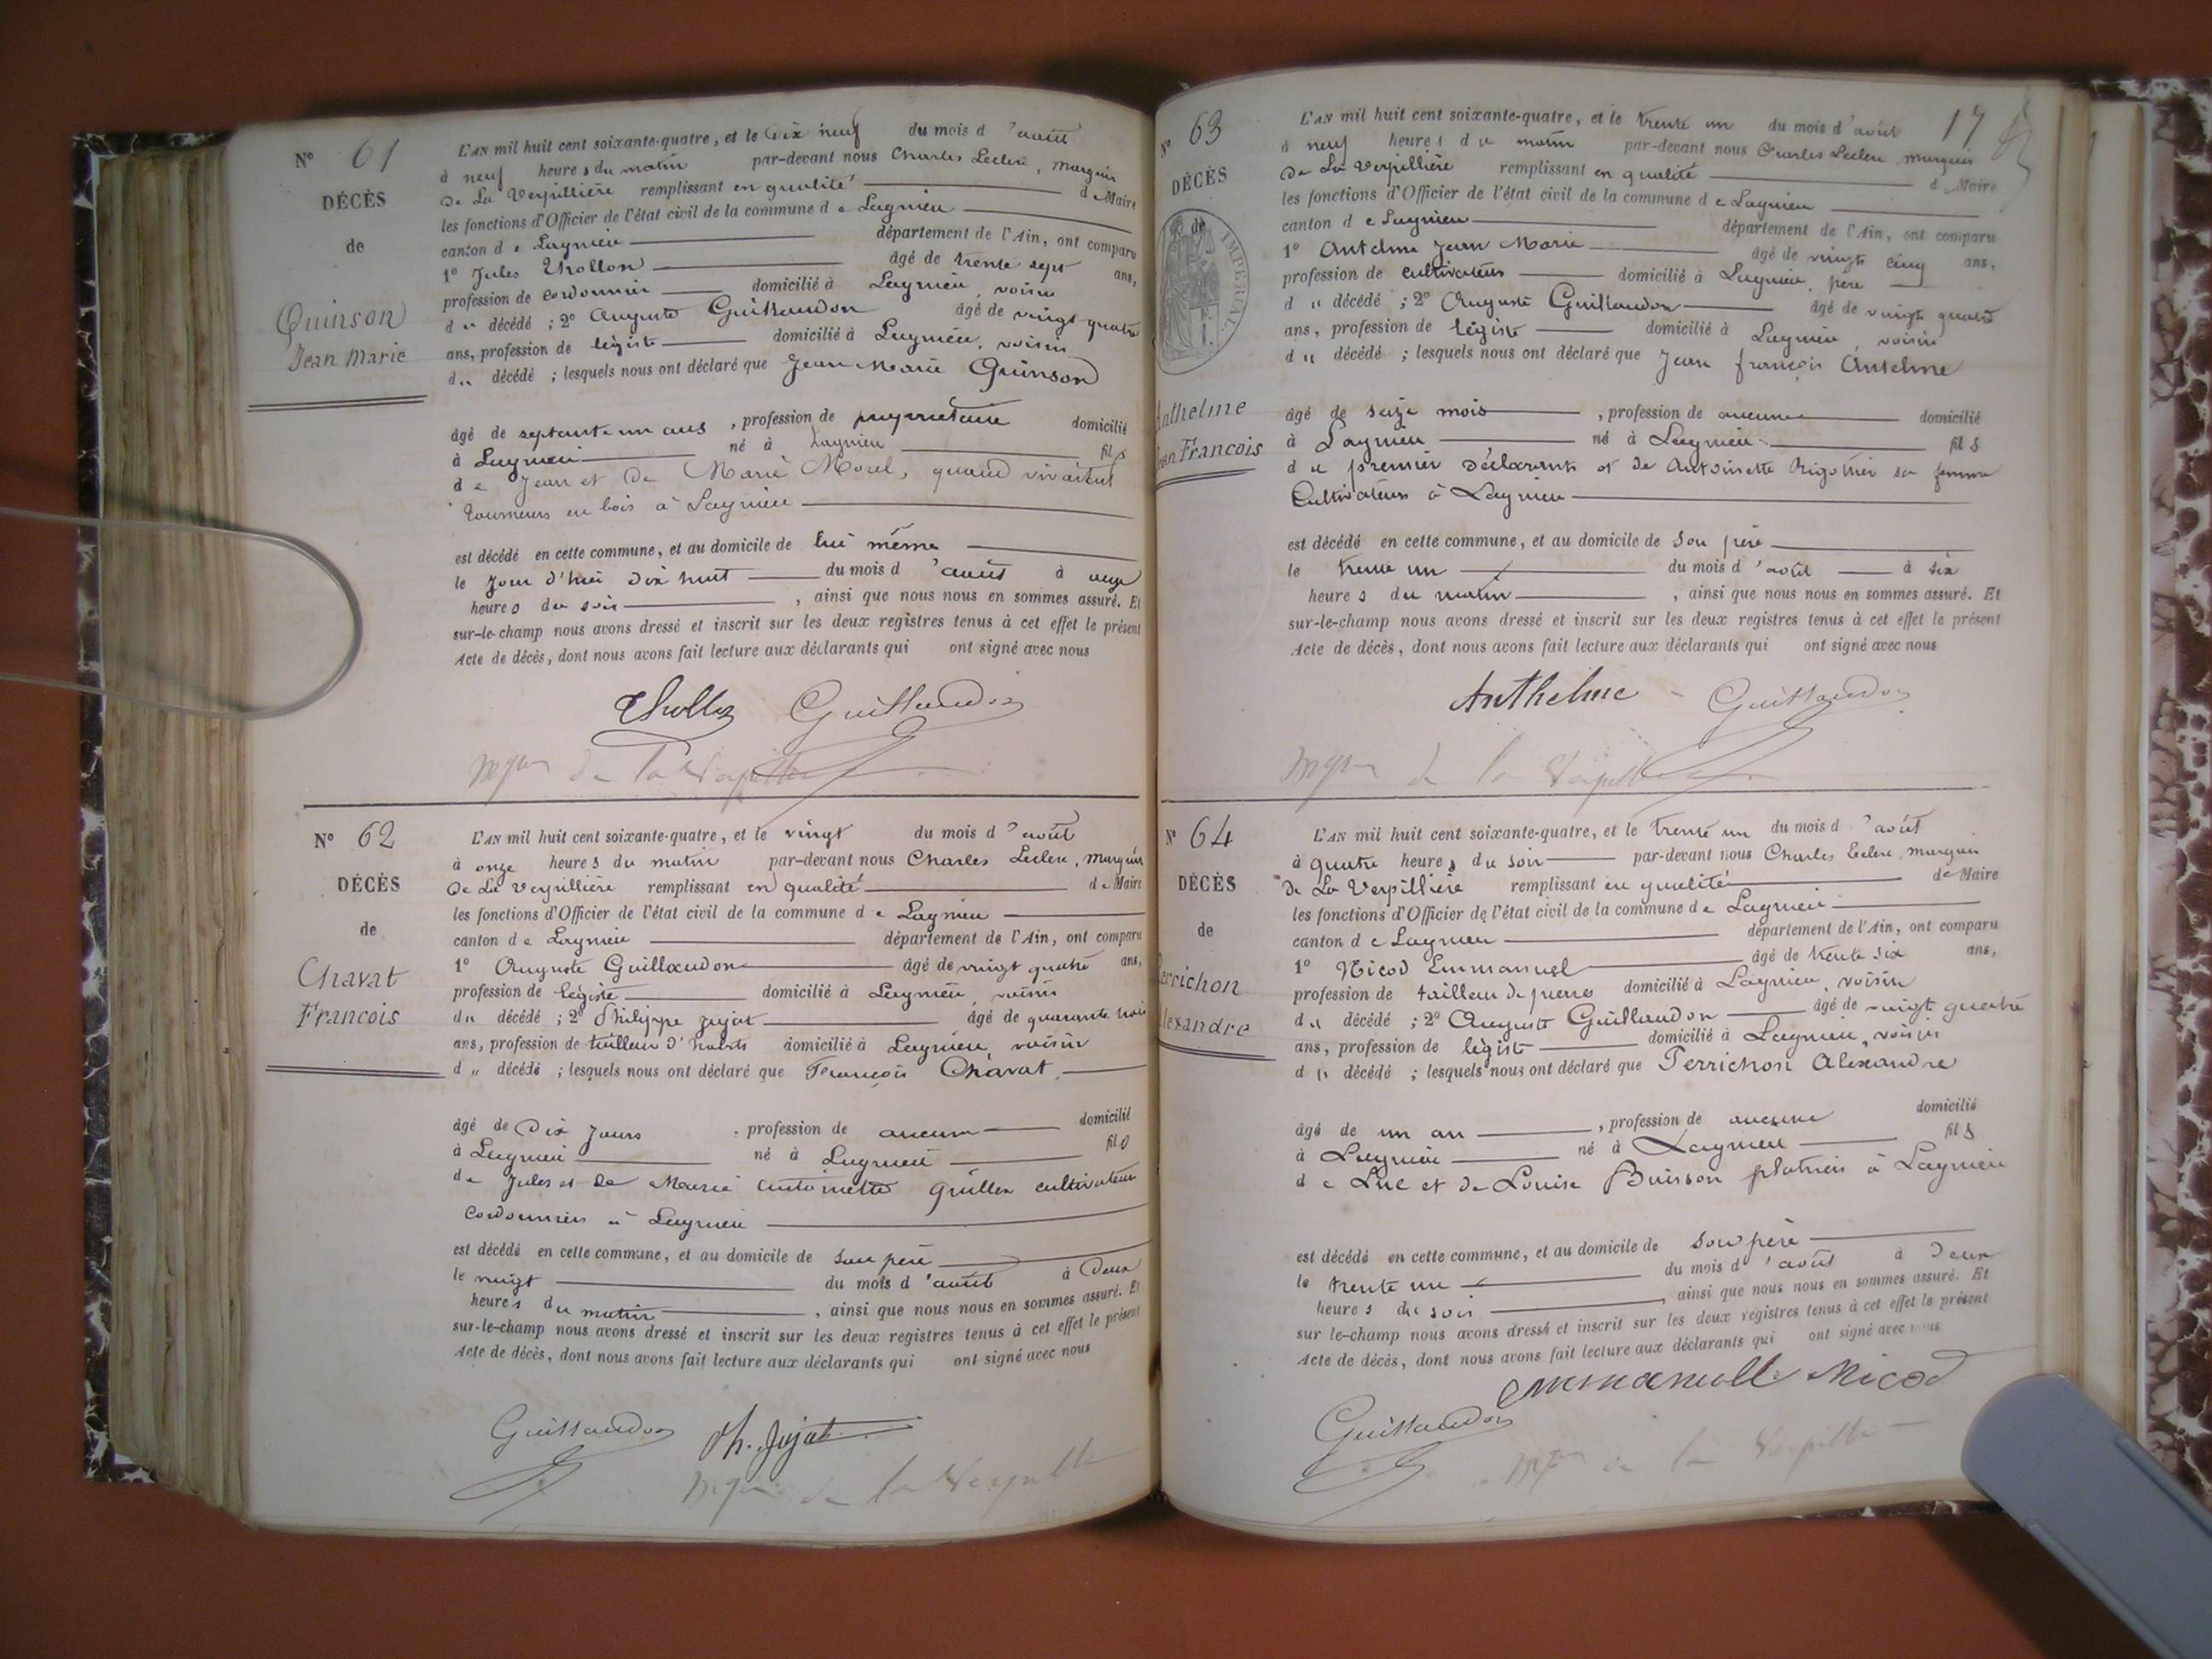 N° 61
DÉCÈS
de
Quinson
Jean Marie
L'AN mil huit cent soixante-quatre, et le Dix neuf du mois d'août
à neuf heures du matin par-devant nous Charles Leclerc, marquis
De La Verpillière remplissant en qualité de Maire
les fonctions d'Officier de l'état civil de la commune de Lagnieu
canton de Lagnieu département de l'Ain, ont comparu
1° Jules Thollon âgé de trente sept ans,
profession de cordonnier domicilié à Lagnieu, voisin
d" décédé ; 2° Auguste Guillaudon âgé de vingt quatre
ans, profession de légiste domicilié à Lagnieu, voisin
d" décédé ; lesquels nous ont déclaré que Jean Marie Quinson
âgé de septante un ans, profession de propriétaire domicilié
à Lagnieu né à Lagnieu fils
de Jean et de Marie Morel, quand vivaient
tourneurs en bois à Lagnieu
est décédé en cette commune, et au domicile de lui même
le jour d'hui dix huit du mois d'août à onze
heures du soir, ainsi que nous nous en sommes assuré. Et
sur-le-champ nous avons dressé et inscrit sur les deux registres tenus à cet effet le présent
Acte de décès, dont nous avons fait lecture aux déclarants qui ont signé avec nous
Thollon Guillaudon
Mquis de la Verpillière
N° 62
DÉCÈS
de
Chavat
Francois
L'AN mil huit cent soixante-quatre, et le vingt du mois d'août
à onze heures du matin par-devant nous Charles Leclerc, marquis
De La Verpillière remplissant en qualité de Maire
les fonctions d'Officier de l'état civil de la commune de Lagnieu
canton de Lagnieu département de l'Ain, ont comparu
1° Auguste Guillaudon âgé de vingt quatre ans,
profession de légiste domicilié à Lagnieu, voisin
du décédé ; 2° Philippe Jujat âgé de quarante trois
ans, profession de tailleur d'habits domicilié à Lagnieu, voisin
d" décédé ; lesquels nous ont déclaré que François Chavat
âgé de Dix jours, profession de aucune domicilié
à Lagnieu né à Lagnieu fils
de Jules et de Marie Antoinette cultivateur
cordonnier à Lagnieu
est décédé en cette commune, et au domicile de son père
le vingt du mois d'août à Deux
heures du matin, ainsi que nous nous en sommes assuré. Et
sur-le-champ nous avons dressé et inscrit sur les deux registres tenus à cet effet le présent
Acte de décès, dont nous avons fait lecture aux déclarants qui ont signé avec nous
Guillaudon Ph. Jujat
Mquis de la Verpillière
17
N° 63
DÉCÈS
de
IMPÉRIAL
Anthelme
Jean Francois
L'AN mil huit cent soixante-quatre, et le trente un du mois d'août
à neuf heures du matin par-devant nous Charles Leclerc, marquis
De La Verpillière remplissant en qualité de Maire
les fonctions d'Officier de l'état civil de la commune de Lagnieu
canton de Lagnieu département de l'Ain, ont comparu
1° Antelme Jean Marie âgé de vingt cinq ans,
profession de cultivateur domicilié à Lagnieu, père
d" décédé ; 2° Auguste Guillaudon âgé de vingt quatre
ans, profession de légiste domicilié à Lagnieu, voisin
d" décédé ; lesquels nous ont déclaré que Jean françois Antelme
âgé de seize mois, profession de aucune domicilié
à Lagnieu né à Lagnieu fils
du premier déclarant et de Antoinette Rigottier sa femme
Cultivateurs à Lagnieu
est décédé en cette commune, et au domicile de son père
le trente un du mois d'août à six
heures du matin, ainsi que nous nous en sommes assuré. Et
sur-le-champ nous avons dressé et inscrit sur les deux registres tenus à cet effet le présent
Acte de décès, dont nous avons fait lecture aux déclarants qui ont signé avec nous
Anthelme Guillaudon
Mquis de la Verpillière
N° 64
DÉCÈS
de
Perrichon
Alexandre
L'AN mil huit cent soixante-quatre, et le trente un du mois d'août
à quatre heures du soir par-devant nous Charles Leclerc, marquis
de La Verpillière remplissant en qualité de Maire
les fonctions d'Officier de l'état civil de la commune de Lagnieu
canton de Lagnieu département de l'Ain, ont comparu
1° Nicod Emmanuel âgé de trente six ans,
profession de tailleur de pierre domicilié à Lagnieu, voisin
d" décédé ; 2° Auguste Guillaudon âgé de vingt quatre
ans, profession de légiste domicilié à Lagnieu, voisin
d" décédé ; lesquels nous ont déclaré que Perrichon Alexandre
âgé de un an, profession de aucune domicilié
à Lagnieu né à Lagnieu fils
de Luc et de Louise Buisson platriers à Lagnieu
est décédé en cette commune, et au domicile de son père
le trente un du mois d'août à deux
heures du soir, ainsi que nous nous en sommes assuré. Et
sur le-champ nous avons dressé et inscrit sur les deux registres tenus à cet effet le présent
Acte de décès, dont nous avons fait lecture aux déclarants qui ont signé avec nous
Emmanuelle Nicod
Guillaudon
Mquis de la Verpillière